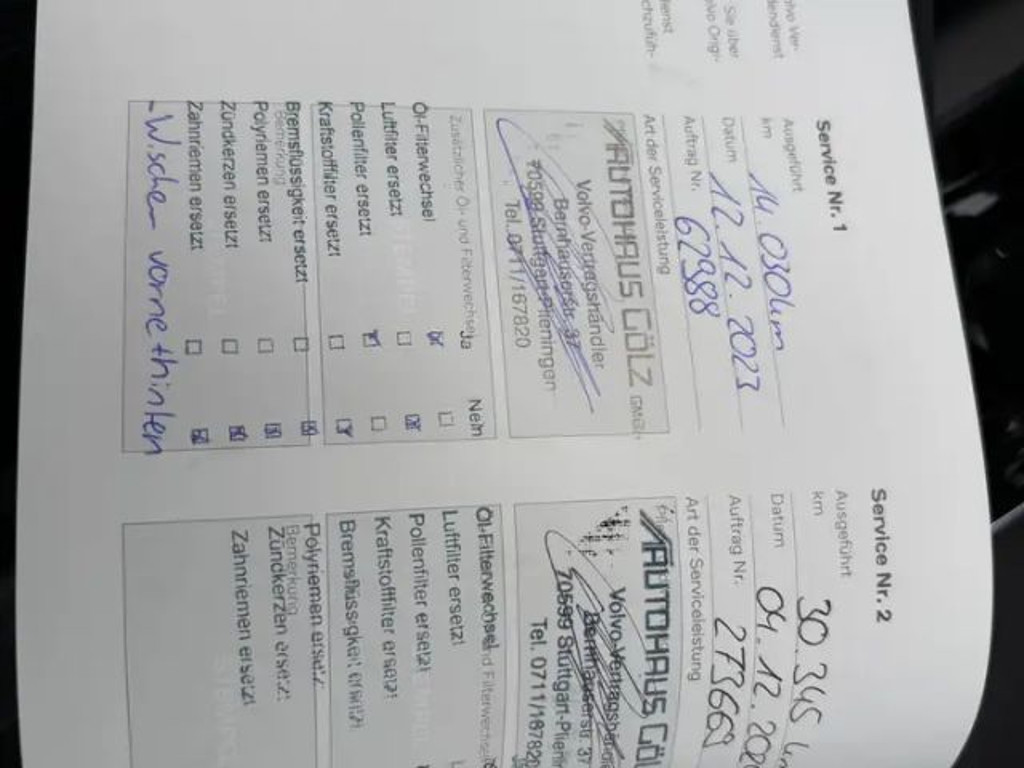 Service Nr. 1
Ausgeführt
km 14.030km
Datum 12.12.2023
Auftrag Nr. 62988
Art der Serviceleistung
AUTOHAUS GÖLZ GMBH
Volvo-Vertragshändler
Bernhauserstr. 37
70599 Stuttgart-Plieningen
Tel. 0711/167820
Zusätzlicher Öl- und Filterwechsel Ja Nein
Öl-Filterwechsel
Luftfilter ersetzt
Pollenfilter ersetzt
Kraftstofffilter ersetzt
Bremsflüssigkeit ersetzt
Bemerkung
Polyriemen ersetzt
Zündkerzen ersetzt
Zahnriemen ersetzt
- Wischer vorne + hinten
Service Nr. 2
Ausgeführt
km 30.345
Datum 04.12.
Auftrag Nr. 273669
Art der Serviceleistung
AUTOHAUS GÖL
Volvo-Vertragshändle
Bernhauserstr. 37
70599 Stuttgart-Plienin
Tel. 0711/167820
Öl-Filterwechsel
Luftfilter ersetzt
Pollenfilter ersetzt
Kraftstofffilter ersetzt
Bremsflüssigkeit ersetzt
Polyriemen ersetzt
Bemerkung
Zündkerzen ersetzt
Zahnriemen ersetzt